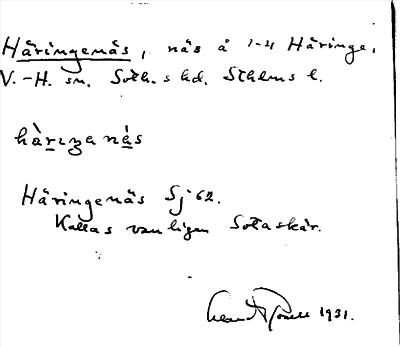 Häringenäs, näs å 1-4 Häringe,
V.-H. sn. Soth.s hd. Sthlms l.
hà̀riŋanä́s
Häringenäs Sj 62.
Kallas vanligen Sotaskär.
1931.